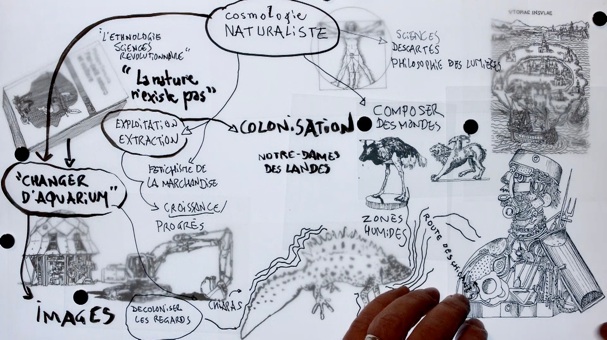 cosmologie
NATURALISTE
"L'ETHNOLOGIE
SCIENCES
REVOLUTIONNAIRE"
"La nature
n'existe pas"
SCIENCES
DESCARTES
PHILOSOPHIE DES LUMIÈRES
UTOPIAE INSULAE
EXPLOITATION
EXTRACTION
COLONISATION
COMPOSER
DES MONDES
NOTRE-DAMES
DES LANDES
FETICHISTE DE
LA MARCHANDISE
"CHANGER
D'AQUARIUM"
CROISSANCE/
PROGRÈS
ZONES
HUMIDES
ROUTE DES
IMAGES
DECOLONISER
LES REGARDS